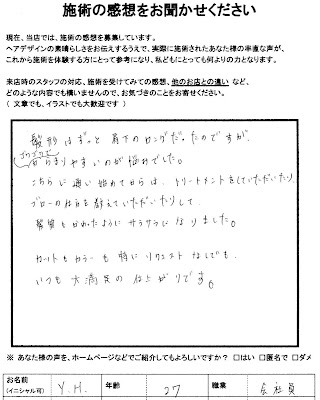 施術の感想をお聞かせください
現在、当店では、施術の感想を募集しています。
ヘアデザインの素晴らしさをお伝えするうえで、実際に施術されたあなた様の率直な声が、
これから施術を体験する方にとって参考になり、私どもにとって何よりの力となります。
来店時のスタッフの対応、施術を受けてみての感想、他のお店との違い など、
どのような内容でも構いませんので、お気づきのことをお寄せください。
( 文章でも、イラストでも大歓迎です )
髪形はずっと肩下のロングだったのですが、
からまりやすいのが悩みでした。
こちらに通い始めてからは、トリートメントをしていただいたり
ブローの仕方を教えていただいたりして、
髪質もかわったようにサラサラになりました。
カットもカラーも特にリクエストなしでも、
いつも大満足の仕上がりです。
※ あなた様の声を、ホームページなどでご紹介してもよろしいですか？ □はい □匿名で □ダメ
お名前 Y.H. 年齢 27 職業 会社員
(イニシャル可)